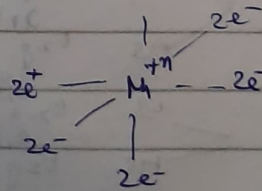 2e⁻
2e⁺ M⁺ⁿ 2e⁻
2e⁻
2e⁻